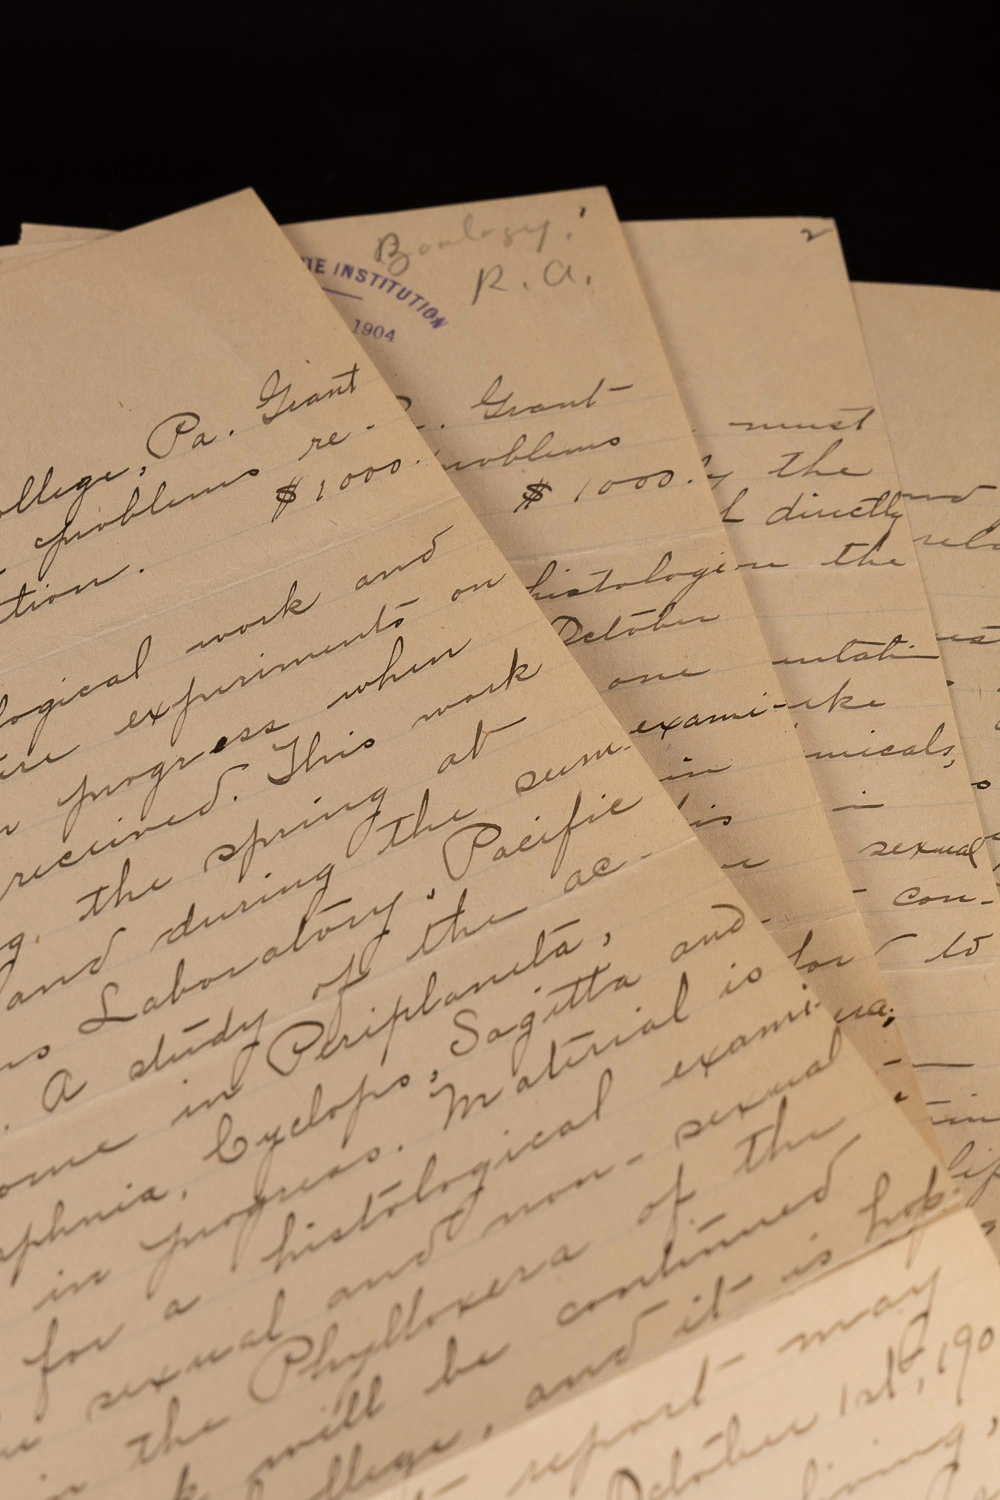 ollege, Pa. Grant
problems re-
$1000.
tion.
logical work and
experiments on
progress when
received. This work
g. the spring at
and during the sum-
Laboratory, Pacific
A study of the ac-
ome in Periplaneta,
aphnia, Cyclops, Sagitta and
in progress. Material is
for a histological exami-
sexual and non-sexual
in the Phylloxera of the
will be continued
ollege, and it is hop-
report may
October 1st, 190
living,
IE INSTITUTION
1904
Zoology.
R. A.
Grant
problems
$1000.
histologi-
October
one
exami-
in
is
for
2
must
y the
directly
n the
entati-
ike
micals,
in
sexual
con-
to